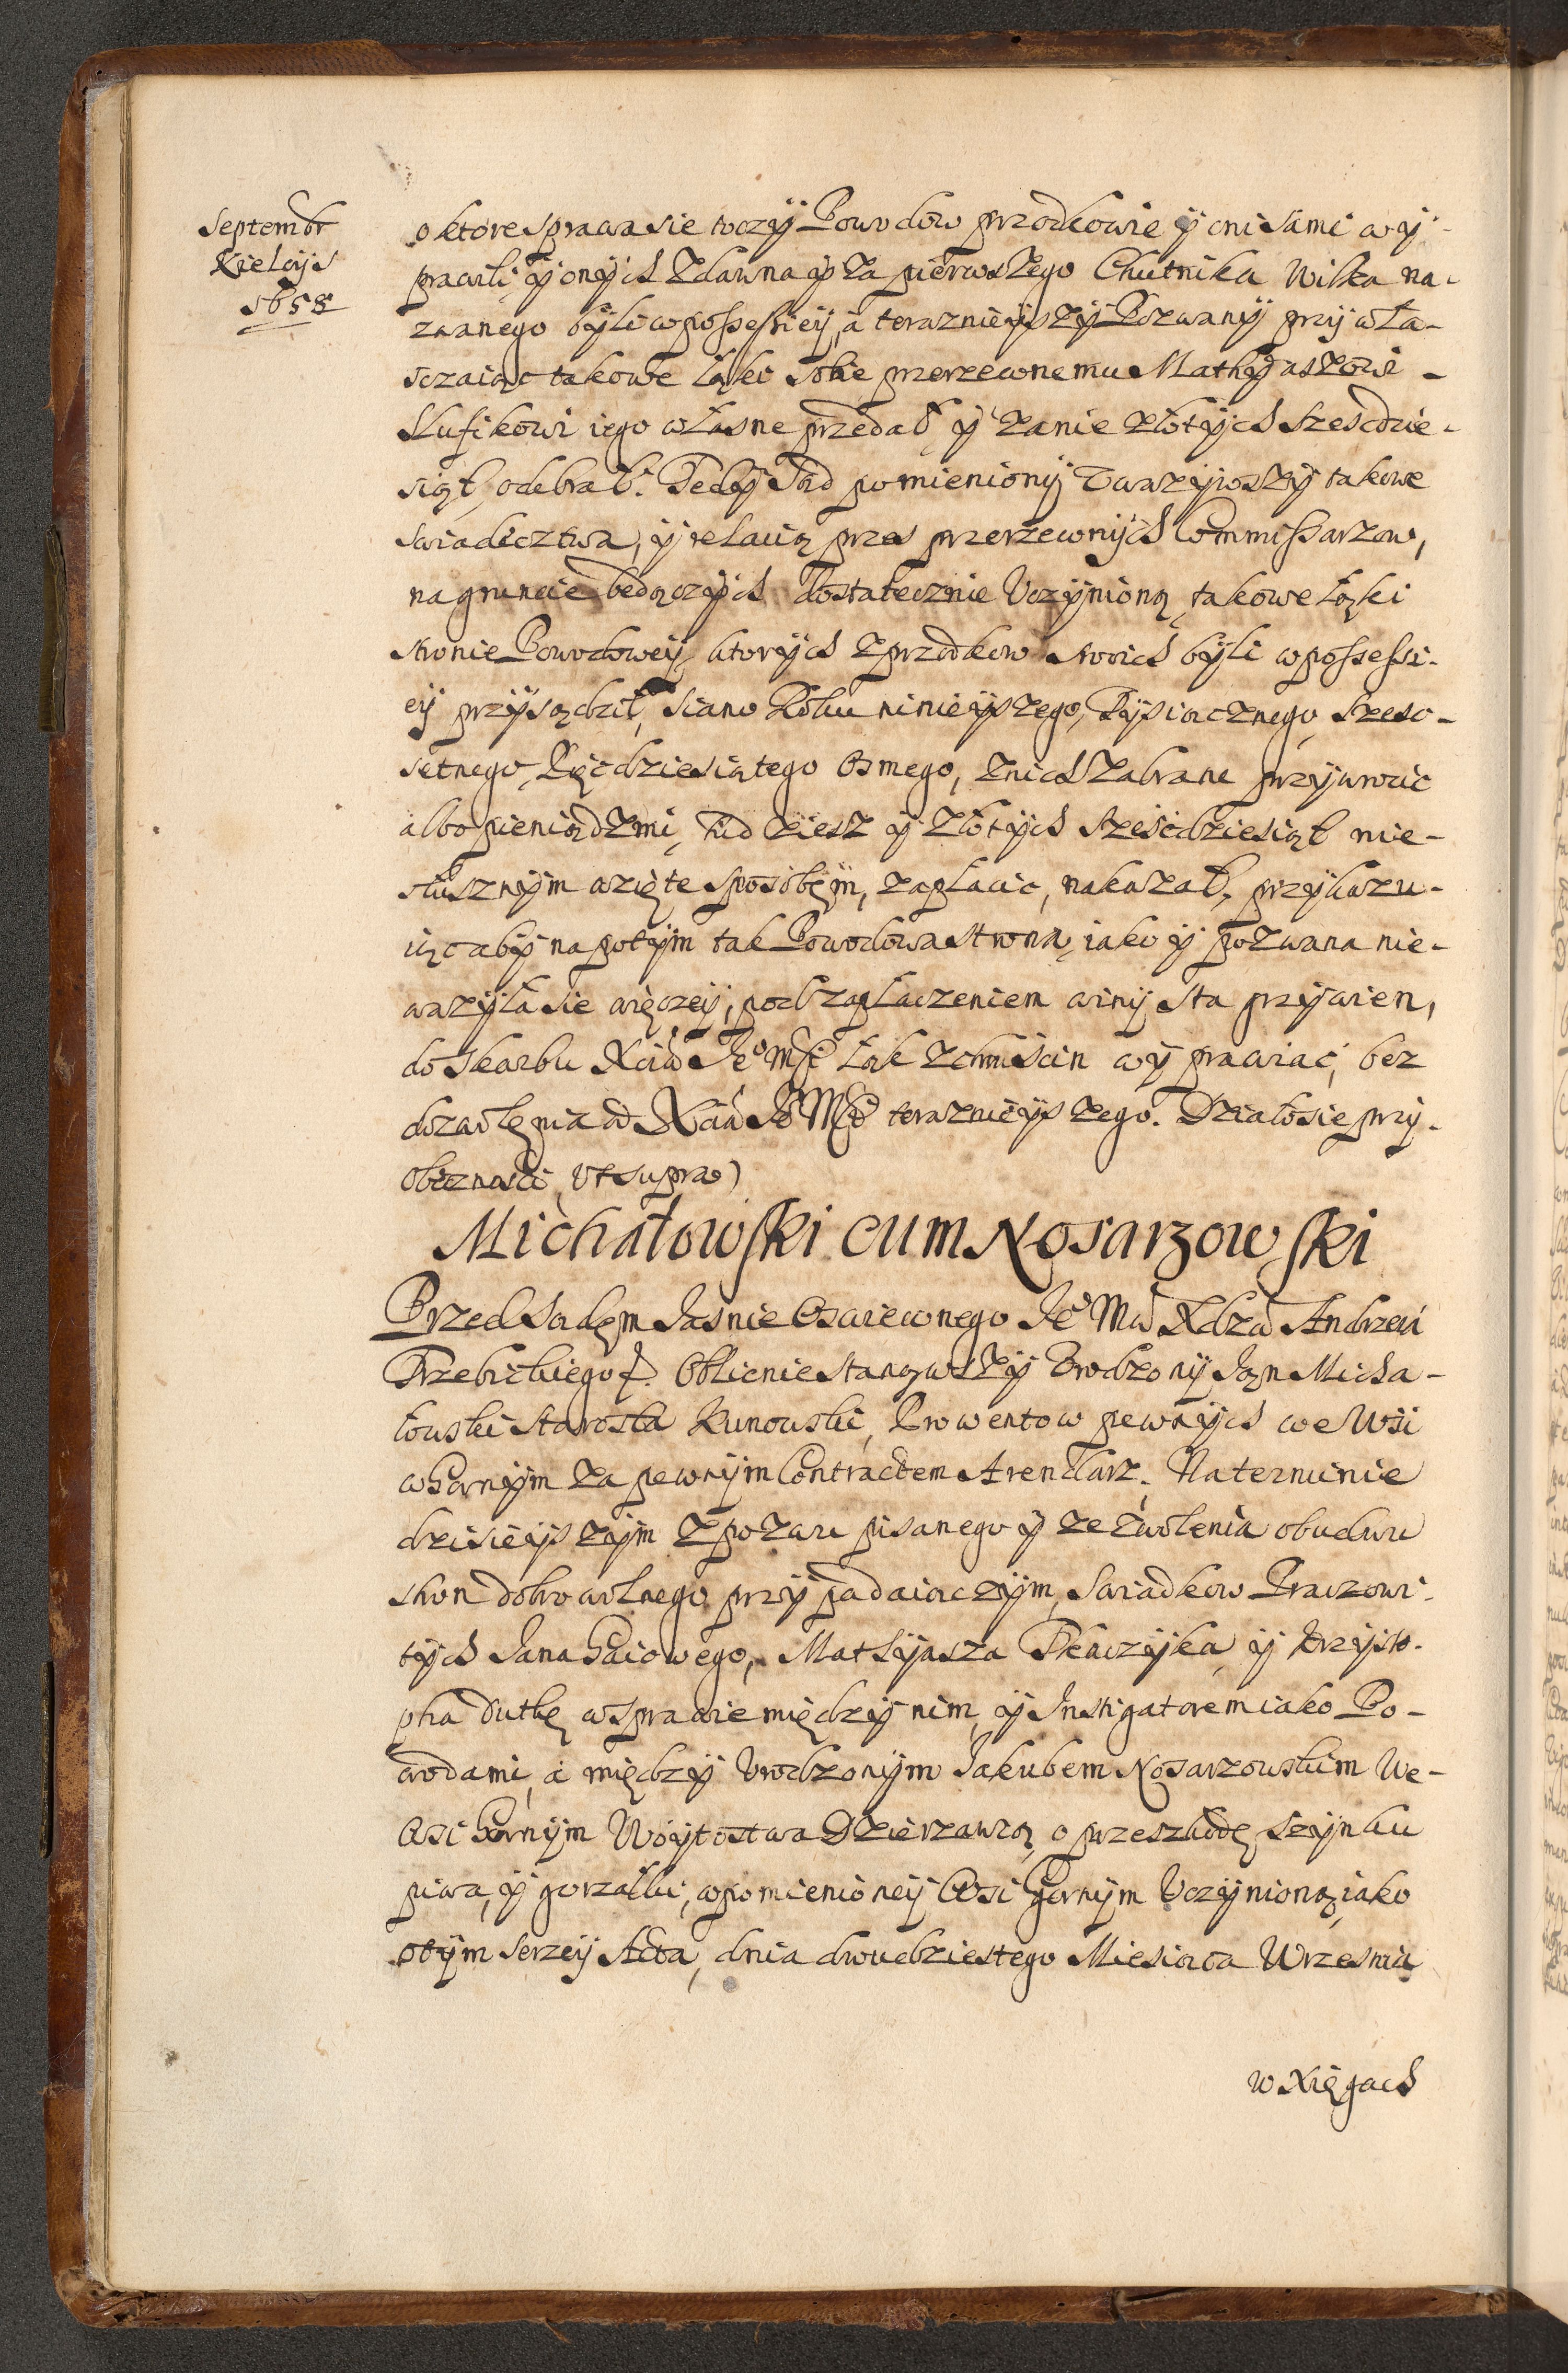 Septembr
Kielcijs
1658
o ktore sprawa sie toczÿ Powodow przodkowie ÿ oni sami wÿ-
prawili, ÿ onÿch zdawna ÿ za pierwszego Chutnika Wilka na-
zwanego bÿli w possessiei, a teraznieÿszÿ Pozwanÿ przÿwła-
szczaiąc takowe łąki sobie przerzeconemu Mathÿaszowi -
Slusikowi iego własne przedał ÿ zanie złotÿch szescdzie-
siąt, odebrał. Tedÿ Sąd pomienionÿ zwazÿwszÿ takowe
swiadecztwa, ÿ relacią przes przerzeconÿch Commissarzow,
na gruncie będączÿch dostatecznie Uczÿnioną, takowe łąki
stronie Powodoweÿ, ktorÿch z przodkow swoich bÿli w possessi-
eÿ przÿsądził, siano Roku ninieÿszego, Tÿsiącznego Szesc-
setnego, Pięcdziesiątego Osmego, znich zabrane przÿwrocic
albo pieniądzmi, tudziesz ÿ złotÿch sześcdziesiąt nie-
słusznÿm wzięte sposobęm, zapłacic, nakazał, przÿkazu-
iąc abÿ napotÿm tak Powodowa strona, iako ÿ pozwana nie-
wazÿła sie więczeÿ, pod zapłaczeniem winÿ sta grzÿwien,
do Skarbu Xcia Je° Mści łąk z chruścin wÿprawiać, bez
dozwolęnia od Xcia Je° Mści teraznieÿszego. Działo sie przÿ-
obecznosci, ut supra)
Michałowski cum Nosarzowski
Przed Sądęm Jasnie Oswieconego Je° Mci Xdza Andrzeia
Trzebickiego &. Oblicnie stanąwszÿ Urodzonÿ Jan Micha-
łowski Starosta Kunowski, Prowentow pewnÿch we Wsi
w Gornÿm za pewnÿm Contractem Arendarz. Na terminie
dzisieÿszÿm z pozwu pisanego ÿ ze zwolenia obudwu
stron dobrowolnego przÿpadaiączÿm, Swiadkow Praczowi-
tÿch Jana Gaiowego, Mathÿasza Tkaczÿka, ÿ Krzÿsto-
pha Dutkę w sprawie międzÿ nim, ÿ Instigatorem iako Po-
wodami, a międzÿ Urodzonÿm Jakubem Nosarzowskim We-
Wsi Gornÿm Woÿtostwa Dzierzawcą o przeszkodę szÿnku
piwa, ÿ gorzałki, w pomienioneÿ Wsi Gornÿm Uczÿnioną, iako
o tÿm szerzeÿ Acta, dnia dwudziestego Miesiąca Wrzesnia
w Xięgach